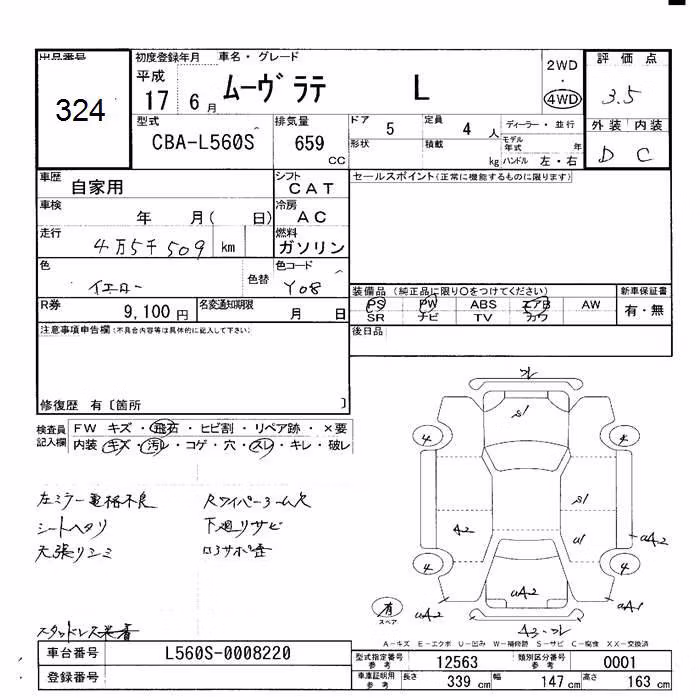 出品番号
324
初度登録年月
平成
17 6月
車名・グレード
ムーヴラテ L
2WD
・
4WD
評価点
3.5
外装 内装
D C
型式
CBA-L560S
排気量
659
CC
ドア 5
定員 4 人
ディーラー・並行
形状
積載 kg
モデル年式 年
ハンドル 左・右
車歴
自家用
シフト
CAT
セールスポイント(正常に機能するものに限ります)
車検
年 月( 日)
冷房
AC
走行
4万5千509 km
燃料
ガソリン
色
イエロー
色替
色コード
Y08
R券
9,100円
名変通知期限
月 日
装備品(純正品に限り○をつけてください)
PS PW ABS エアB AW
SR ナビ TV カワ
新車保証書
有・無
後日品
注意事項申告欄(不具合内容等は具体的に記入して下さい)
修復歴 有〔箇所 〕
検査員記入欄
FW キズ・飛石・ヒビ割・リペア跡・×要
内装・キズ・汚レ・コゲ・穴・スレ・キレ・破レ
左ミラー電格不良
シートヘタリ
天張リシミ
Rワイパーゴム欠
下廻リサビ
スタッドレス装着
フレ
S1
4
4
S1
A2
U1
uA2
4
4
uA2
uA2
uA1
A3-フレ
有
スペア
A-キズ E-エクボ U-凹み W-補修跡 S-サビ C-腐食 XX-交換済
車台番号
L560S-0008220
登録番号
型式指定番号
参考
12563
類別区分番号
参考
0001
車庫証明用
参考
長さ 339 cm
幅 147 cm
高さ 163 cm